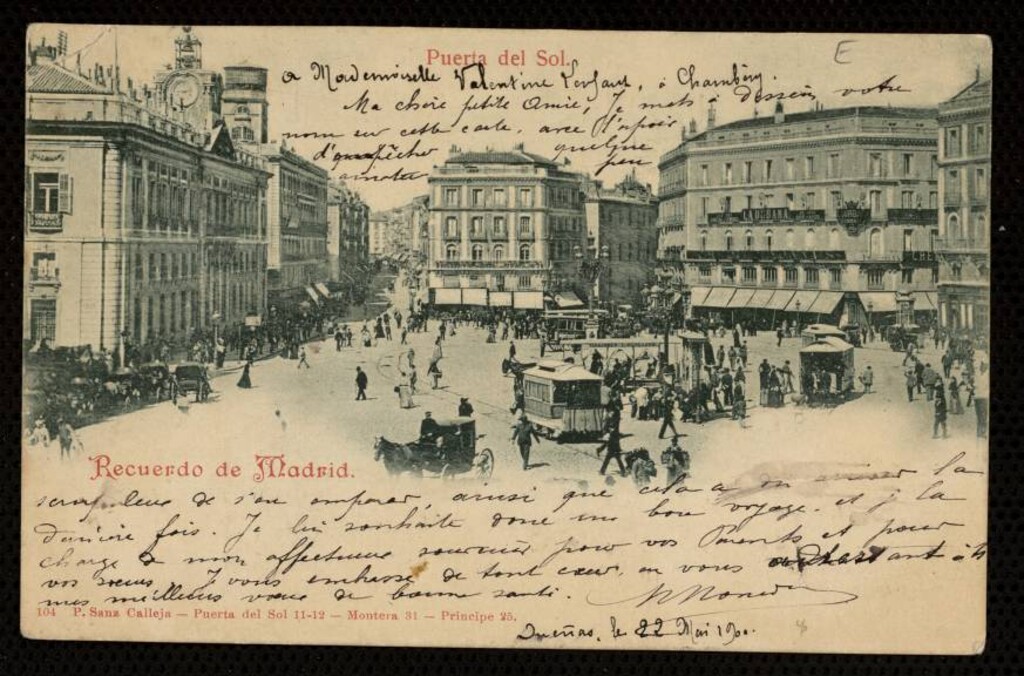 Puerta del Sol.
E
a Mademoiselle Valentine à Chambéry.
Ma chère petite Amie, Je mets à dessein votre
nom sur cette carte, avec l'espoir
d'empêcher quelque peu
scrupuleux de s'en emparer, ainsi que cela a arriver la
dernière fois. Je lui souhaite donc un bon voyage, et je la
charge de mon affectueux souvenir pour vos Parents et pour
vos sœurs. Je vous embrasse de tout cœur, en vous
mes meilleurs vœux de bonne santé.
Recuerdo de Madrid.
104 P. Sanz Calleja — Puerta del Sol 11-12 — Montera 31 — Principe 25.
Dueñas, le 22 Mai 1900.